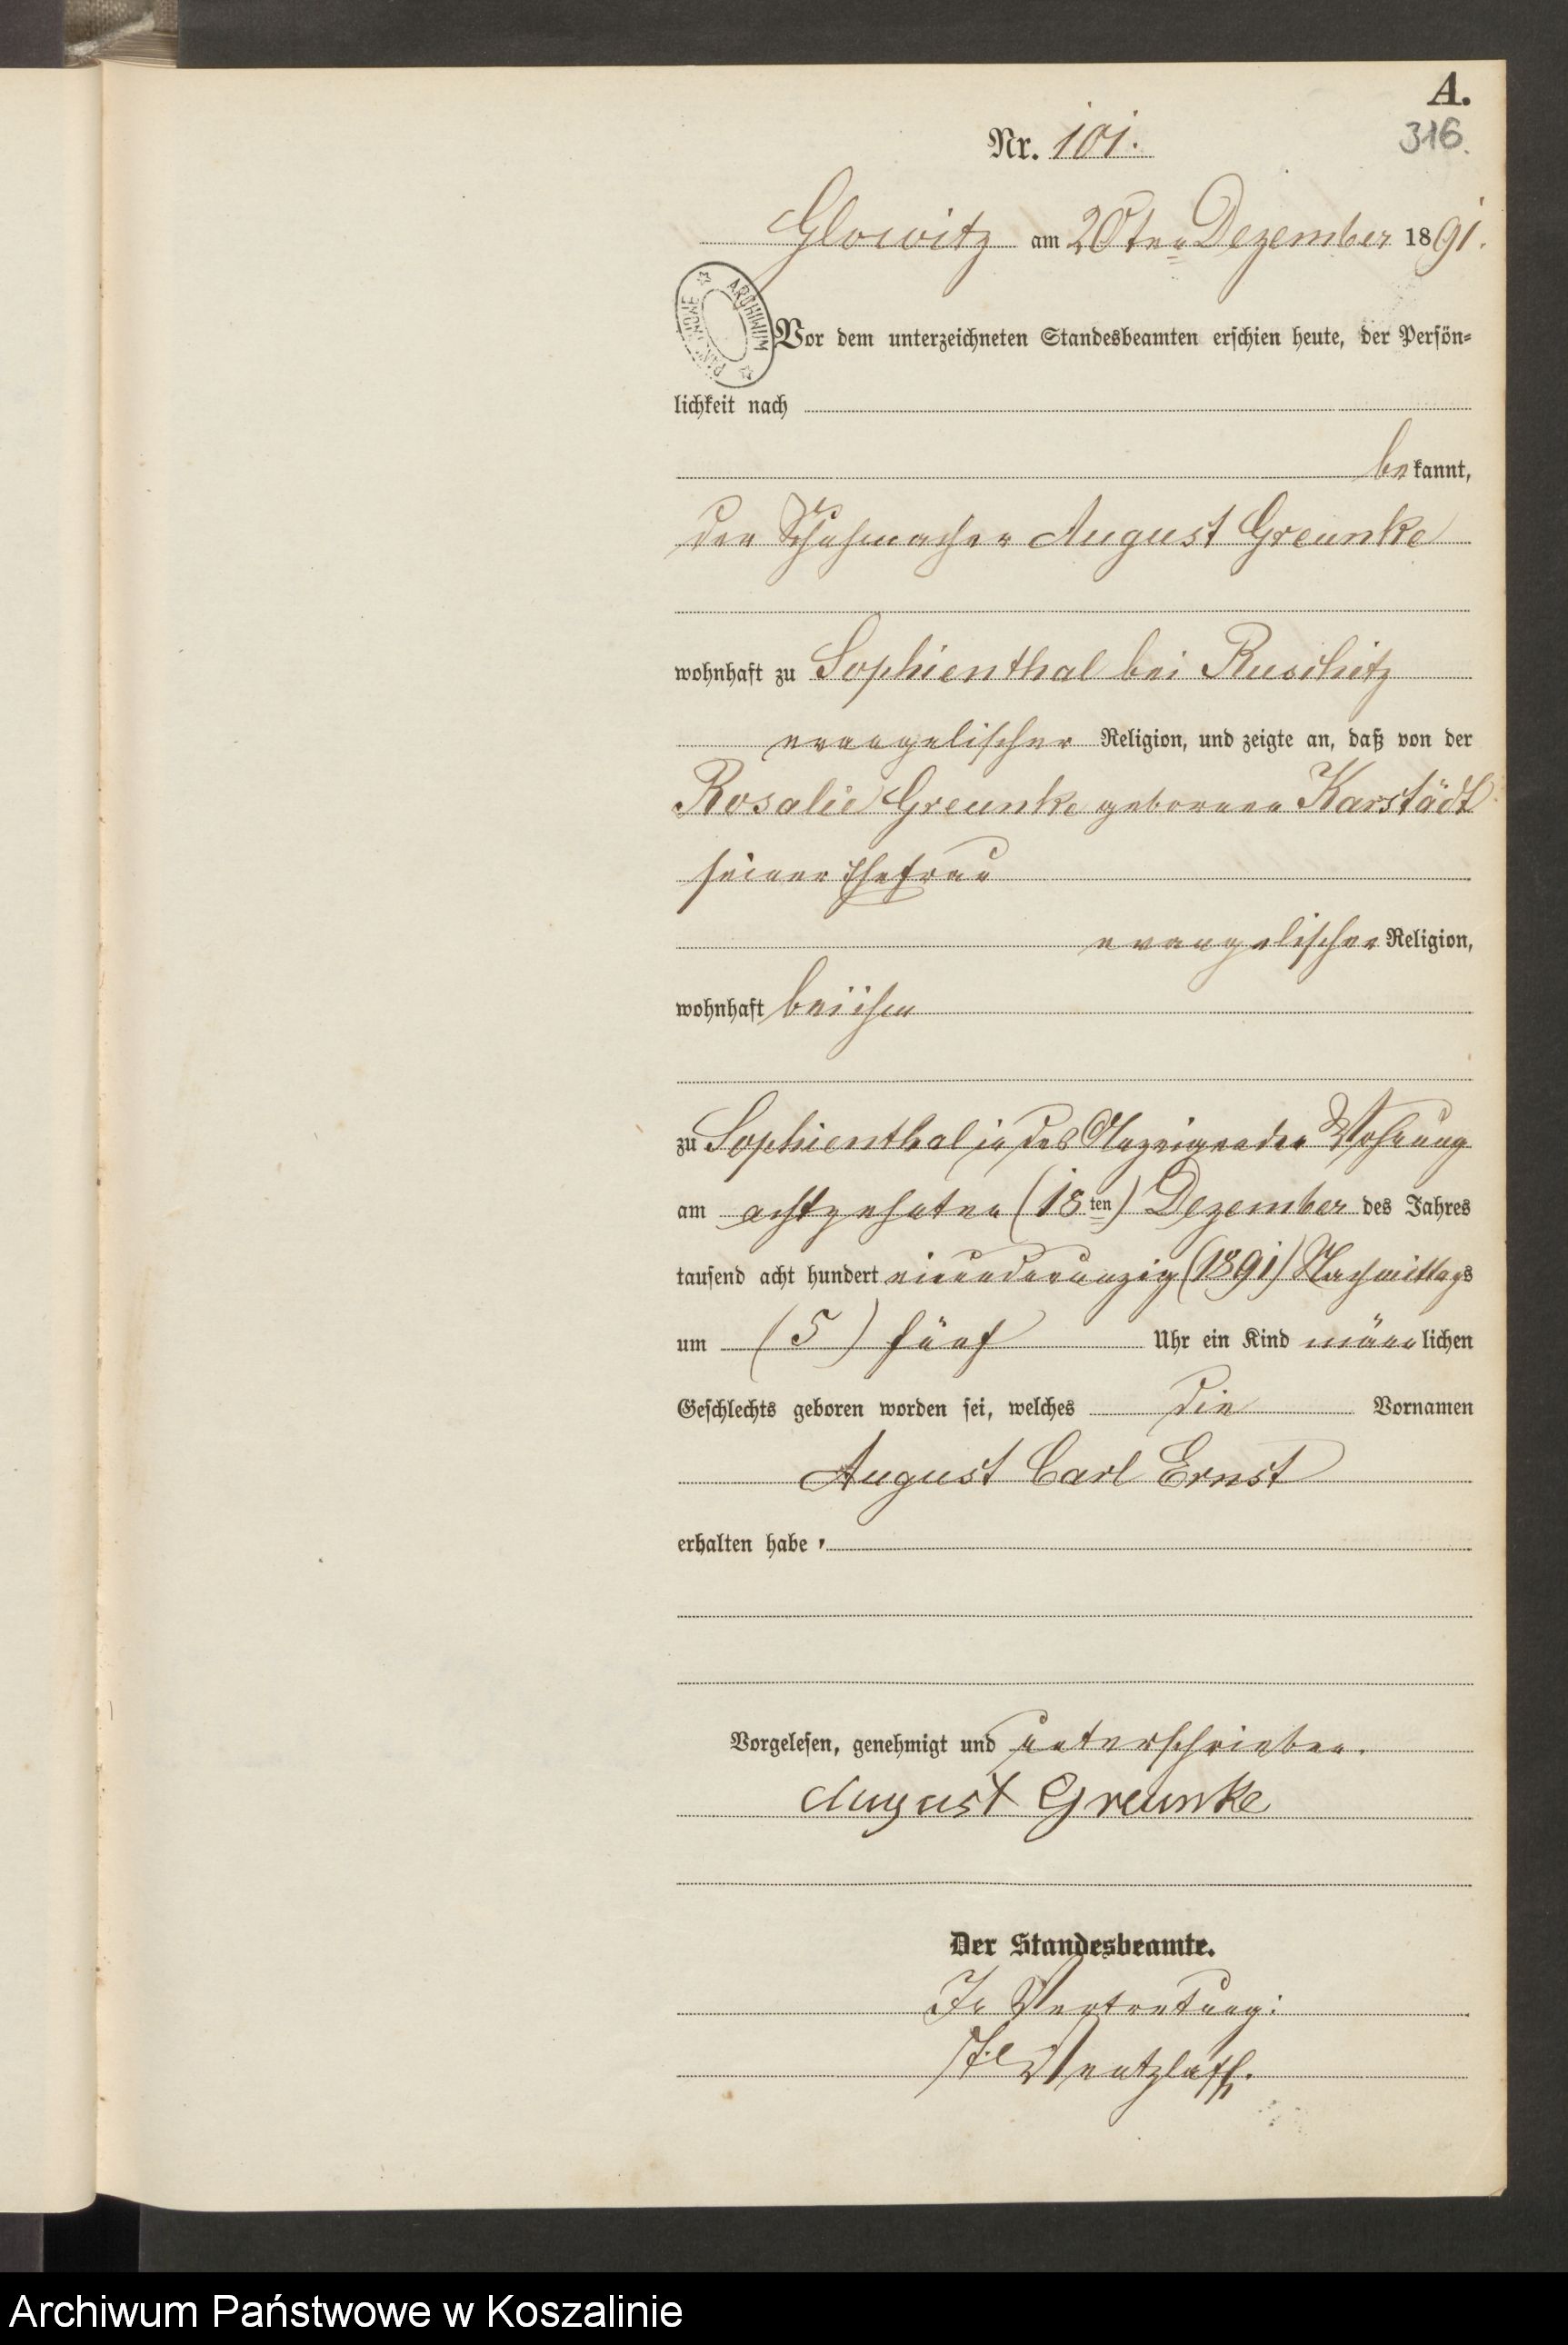 A.
316.
Nr. 101.
Glowitz am 20ten Dezember 1891.
ARCHIWUM PAŃSTWOWE
Vor dem unterzeichneten Standesbeamten erschien heute, der Persön-
lichkeit nach
bekannt,
der Schuhmacher August Greunke
wohnhaft zu Sophienthal bei Ruschitz
evangelischer Religion, und zeigte an, daß von der
Rosalie Greunke geborenen Karstädt
seiner Ehefrau
evangelischer Religion,
wohnhaft bei ihm
zu Sophienthal in des Anzeigenden Wohnung
am achtzehnten (18ten) Dezember des Jahres
tausend acht hundert einundneunzig (1891) Nachmittags
um (5) fünf Uhr ein Kind männlichen
Geschlechts geboren worden sei, welches die Vornamen
August Carl Ernst
erhalten habe,
Vorgelesen, genehmigt und unterschrieben.
August Greunke
Der Standesbeamte.
In Vertretung:
Wentzlaff.
Archiwum Państwowe w Koszalinie